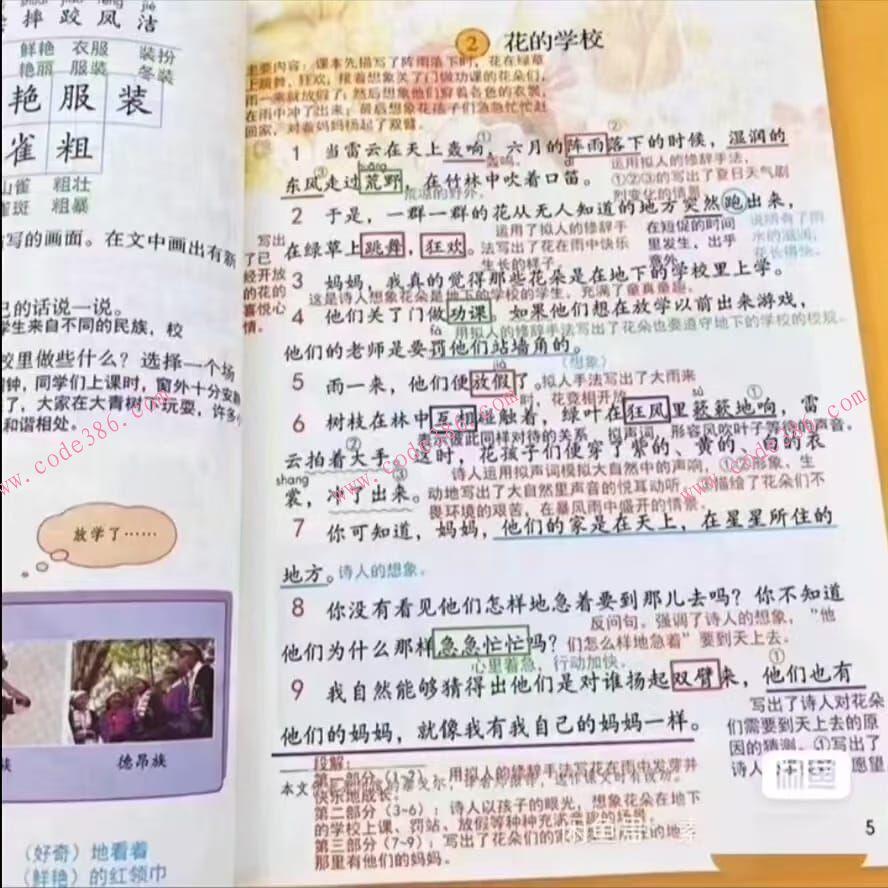 摔 跤 凤 洁
鲜艳 衣服 装扮
艳丽 服装 冬装
艳 服 装
雀 粗
山雀 粗壮
雀斑 粗暴
写的画面。在文中画出有新
己的话说一说。
学生来自不同的民族，校
校里做些什么？选择一个场
钟，同学们上课时，窗外十分安静
了，大家在大青树下玩耍，许多小
和谐相处。
放学了……
族 德昂族
（好奇）地看着
（鲜艳）的红领巾
2 花的学校
主要内容：课本先描写了阵雨落下时，花在绿草
上跳舞、狂欢，接着想象关了门做功课的花朵们，
雨一来就放假了；然后想象他们穿着各色的衣裳，
在雨中冲了出来；最后想象花孩子们急急忙忙赶
回家，对着妈妈扬起了双臂。
① ②
1 当雷云在天上轰响，六月的阵雨落下的时候，湿润的
轰鸣。 运用拟人的修辞手法，
③ huāng dí
东风走过荒野，在竹林中吹着口笛。 ①②③的写出了夏日天气剧
荒凉的野外。 烈变化的情景。
2 于是，一群一群的花从无人知道的地方突然跑出来，
写出了已经开放的花的喜悦心情。
运用了拟人的修辞手 在短促的时间 说明有了雨
在绿草上跳舞，狂欢。法写出了花在雨中快乐 里发生，出乎 水的滋润，
生长的样子。 意外。 花长得快。
3 妈妈，我真的觉得那些花朵是在地下的学校里上学。
这是诗人想象花朵是地下的学校的学生，充满了童真童趣。
4 他们关了门做功课。如果他们想在放学以前出来游戏，
fá 用拟人的修辞手法写出了花朵也要遵守地下的学校的校规。
他们的老师是要罚他们站墙角的。
jià （想象）
5 雨一来，他们便放假了。拟人手法写出了大雨来
时，花竞相开放 sù ①
6 树枝在林中互相碰触着，绿叶在狂风里簌簌地响，雷
表示彼此同样对待的关系。 拟声词，形容风吹叶子等的声音。
②
云拍着大手。这时，花孩子们便穿了紫的、黄的、白的衣
shang ③ 诗人运用拟声词模拟大自然中的声响，①②形象、生
裳，冲了出来。动地写出了大自然里声音的悦耳动听，③描绘了花朵们不
畏环境的艰苦，在暴风雨中盛开的情景。
7 你可知道，妈妈，他们的家是在天上，在星星所住的
地方。诗人的想象。
8 你没有看见他们怎样地急着要到那儿去吗？你不知道
反问句。强调了诗人的想象，“他
他们为什么那样急急忙忙吗？ 们怎么样地急着”要到天上去。
心里着急，行动加快。
①
9 我自然能够猜得出他们是对谁扬起双臂来，他们也有
他们的妈妈，就像我有我自己的妈妈一样。
写出了诗人对花朵
们需要到天上去的原
因的猜测。①写出了
诗人 愿望
段解：
第一部分（1-2）：用拟人的修辞手法写花在雨中发芽并
本文
快乐地成长。
第二部分（3-6）：诗人以孩子的眼光，想象花朵在地下
的学校上课、罚站、放假等种种充满
第三部分（7-9）：写出了花朵们的家
那里有他们的妈妈。
闲鱼
5
www.code386.com
www.code386.com
www.code386.com